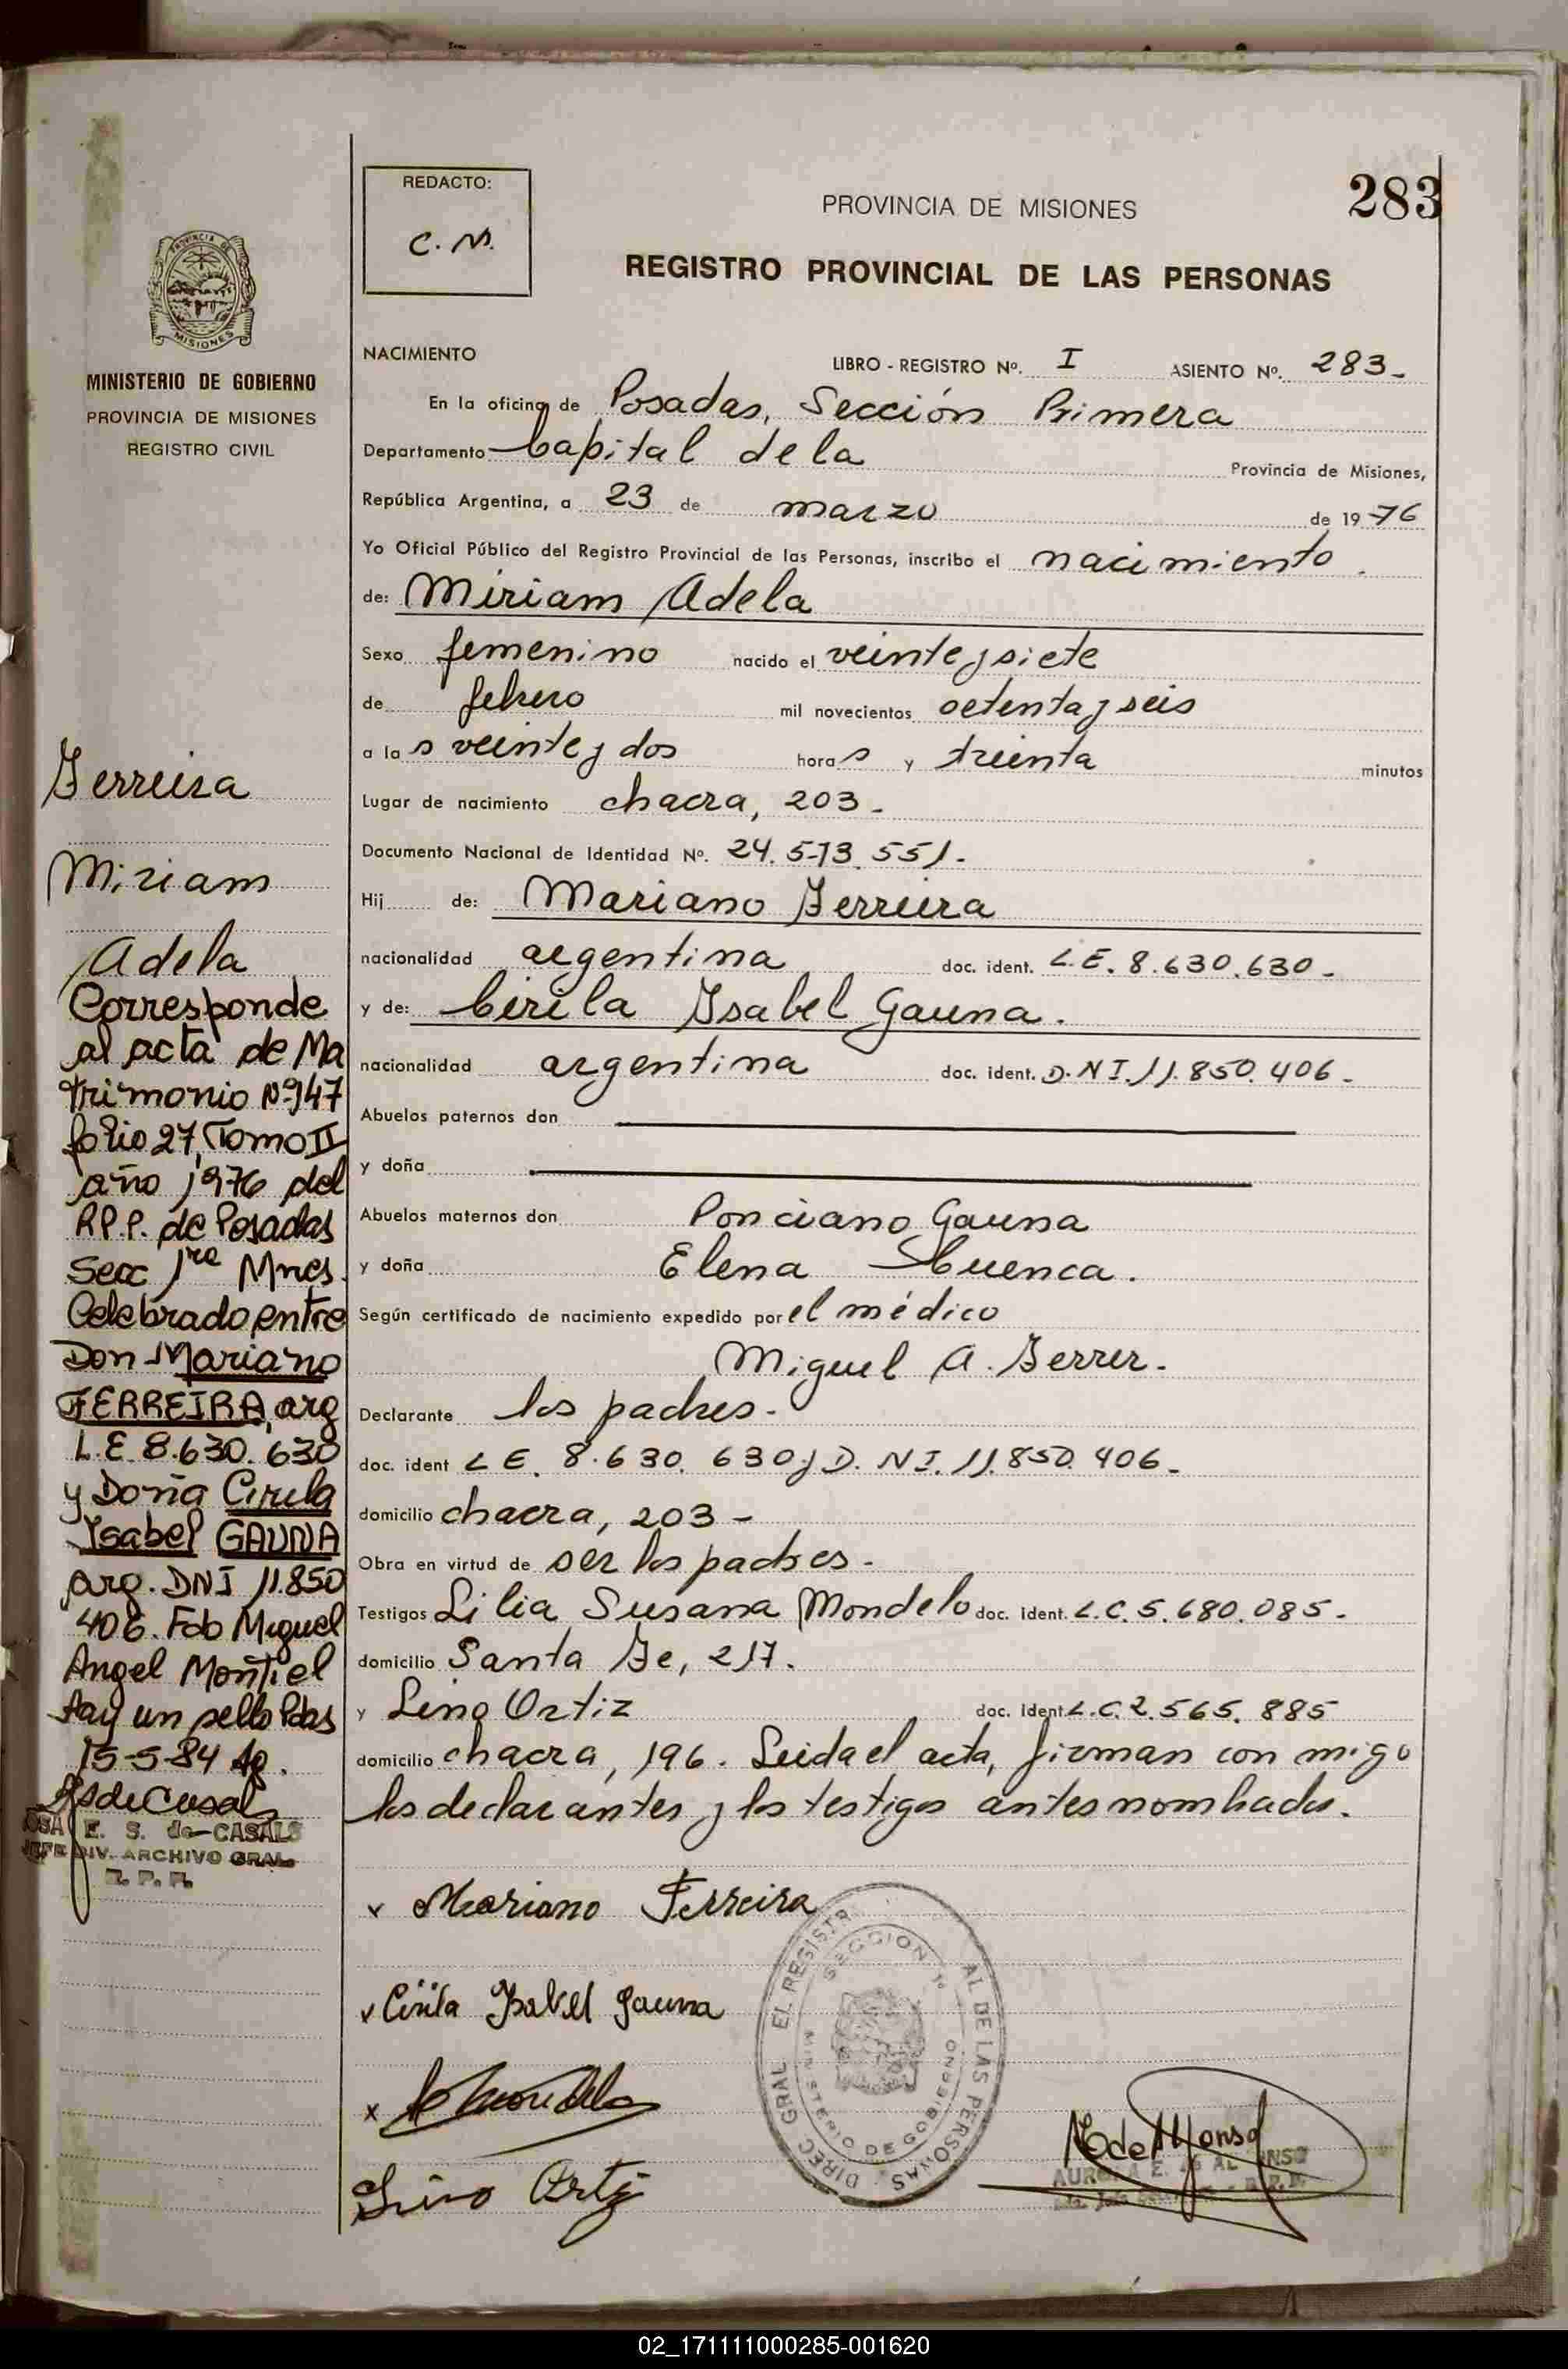 283
REDACTO:
C. N.
PROVINCIA DE MISIONES
REGISTRO PROVINCIAL DE LAS PERSONAS
PROVINCIA DE
MISIONES
MINISTERIO DE GOBIERNO
PROVINCIA DE MISIONES
REGISTRO CIVIL
NACIMIENTO LIBRO - REGISTRO Nº. I ASIENTO Nº. 283-
En la oficina de Posadas, Sección Primera
Departamento Capital de la Provincia de Misiones,
República Argentina, a 23 de marzo de 1976
Yo Oficial Público del Registro Provincial de las Personas, inscribo el nacimiento.
de: Miriam Adela
Sexo femenino nacido el veinte y siete
de febrero mil novecientos setenta y seis
a la s veinte y dos hora s y treinta minutos
Lugar de nacimiento chacra, 203-
Documento Nacional de Identidad Nº. 24.573.551.-
Hij de: Mariano Ferreira
nacionalidad argentina doc. ident. L.E. 8.630.630-
y de: Cirila Isabel Gauna.
nacionalidad argentina doc. ident. D.N.I. 11.850.406-
Abuelos paternos don
y doña
Abuelos maternos don Ponciano Gauna
y doña Elena Cuenca.
Según certificado de nacimiento expedido por el médico
Miguel A. Ferrer.
Declarante los padres-
doc. ident L.E. 8.630.630 y D.N.I. 11.850.406-
domicilio chacra, 203-
Obra en virtud de ser los padres-
Testigos Lilia Susana Mondelo doc. ident. L.C. 5.680.085-
domicilio Santa Fe, 217.
y Lino Ortiz doc. ident L.C. 2.565.885
domicilio chacra, 196. Leida el acta, firman con migo
los declarantes y los testigos antes nombrados.
Ferreira
Miriam
Adela
Corresponde
al acta de Ma
trimonio Nº 147
folio 27, Tomo II
año 1976 del
R.P.P. de Posadas
Secc 1ra Mnes.
Celebrado entre
Don Mariano
FERREIRA, arg
L.E. 8.630.630
y Doña Cirila
Isabel GAUNA
arg. DNI 11.850
406. Fdo Miguel
Angel Montiel
Hay un sello Pdas
15-5-84
E. S. de CASALS
JEFE DIV. ARCHIVO GRAL.
R. P. P.
x Mariano Ferreira
x Cirila Isabel Gauna
x
Lino Ortiz
DIREC. GRAL. EL REGISTR AL DE LAS PERSONAS
SECCION 1º
MINISTERIO DE GOBIERNO
AURORA E.
02_171111000285-001620